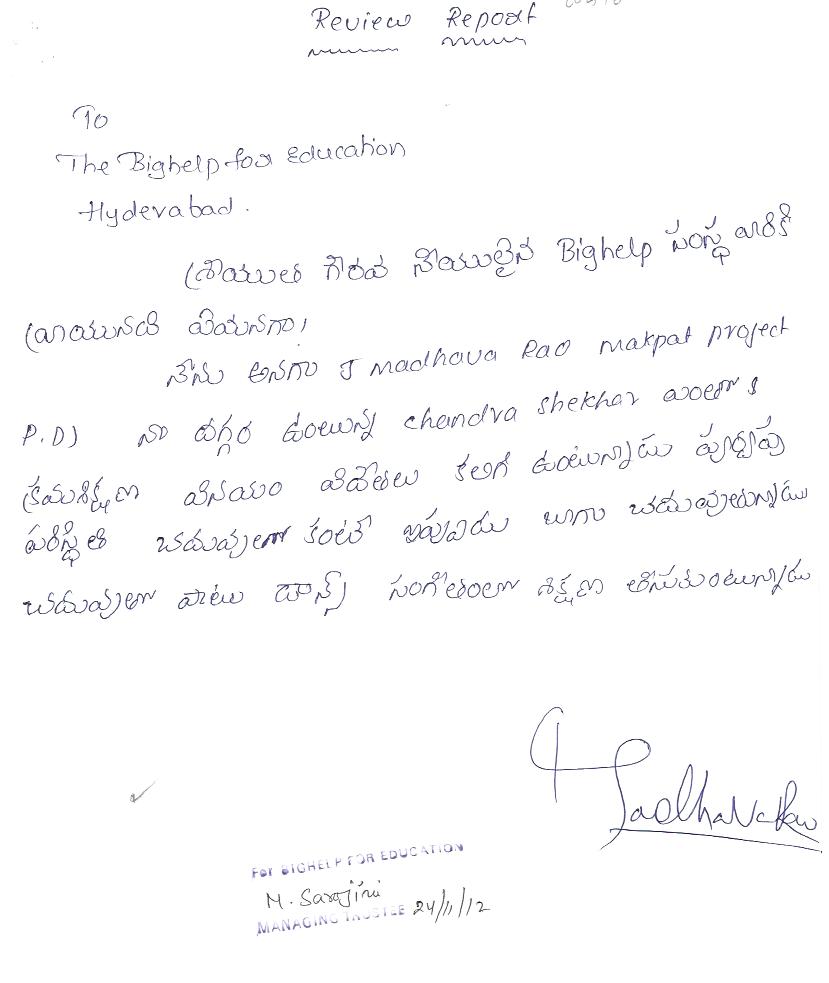 Review Report
To
The Bighelp for Education
Hyderabad.
శ్రీయుత గౌరవ నీయులైన Bighelp సంస్థ వారికి
వ్రాయునది ఏమనగా,
నేను అనగా J Madhava Rao makpat project
P.D) నా దగ్గర ఉంటున్న chandra shekhar
క్రమశిక్షణ వినయం విదేతలు కలిగి ఉంటున్నాడు పూర్వపు
పరిస్థితి చదువులో కంటే ఇప్పుడు బాగా చదువుతున్నాడు
చదువుతో పాటు డాన్స్ సంగీతంలో శిక్షణ తీసుకుంటున్నాడు
J Madhava Rao
For BIGHELP FOR EDUCATION
M. Sarojini
MANAGING TRUSTEE 24/11/12